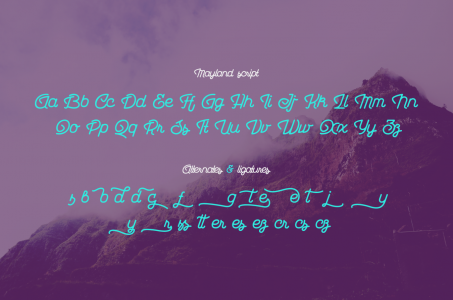 Mayland script
Aa Bb Cc Dd Ee Ff Gg Hh Ii Jj Kk Ll Mm Nn
Oo Pp Qq Rr Ss Tt Uu Vv Ww Xx Yy Zz
Alternates & ligatures
s b b d d g f g t e o t j y
y r ss tt er es ez cr cs cz